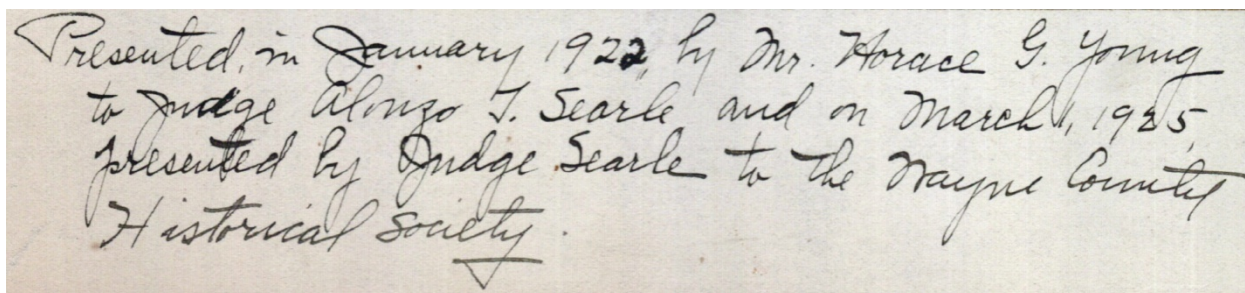 Presented, in January 1922, by Mr. Horace G. Young
to Judge Alonzo T. Searle and on March 1, 1925,
presented by Judge Searle to the Wayne County
Historical Society.